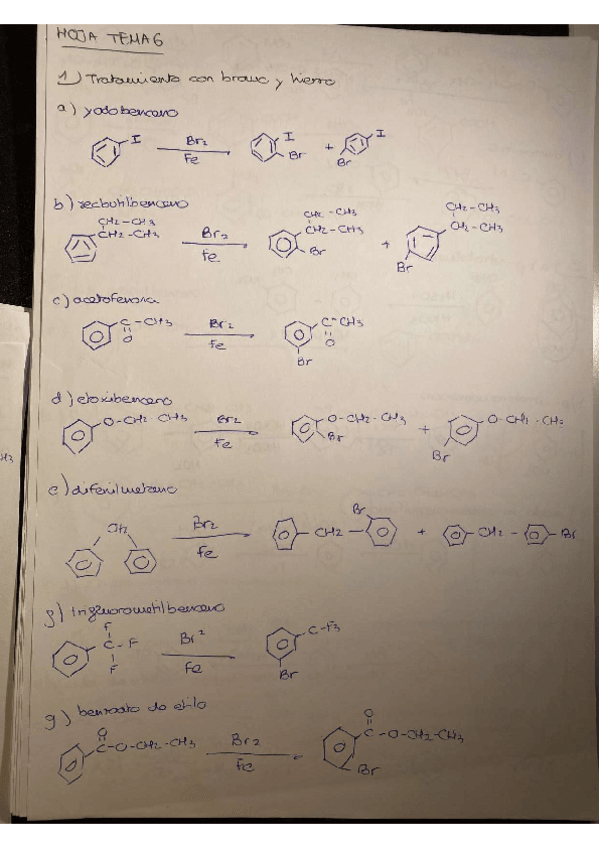 HOJA TEMA 6
1) Tratamiento con bromo y hierro
a) yodobenceno
I Br2 Fe I Br + I Br
b) secbutilbenceno
CH2-CH3 CH2-CH3 Br2 Fe CH2-CH3 CH2-CH3 Br + CH2-CH3 CH2-CH3 Br
c) acetofenona
C-CH3 O Br2 Fe C-CH3 O Br
d) etoxibenceno
O-CH2-CH3 Br2 Fe O-CH2-CH3 Br + O-CH2-CH3 Br
e) difenilmetano
CH2 Br2 Fe CH2 Br + CH2 Br
f) trifluorometilbenceno
F C-F F Br2 Fe C-F3 Br
g) benzoato de etilo
O C-O-CH2-CH3 Br2 Fe O C-O-CH2-CH3 Br
H3